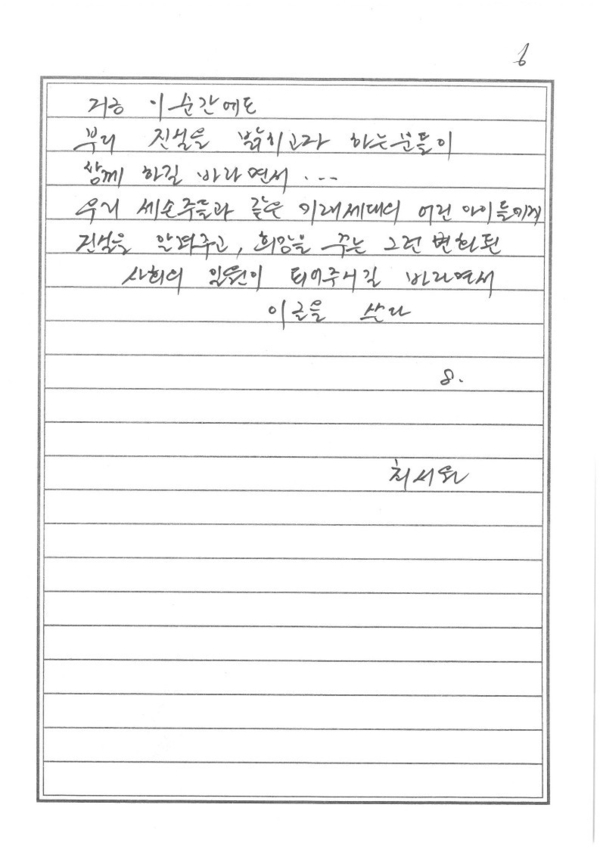 6
지금 이 순간에도
부디 진실을 밝히고자 하는분들이
함께 하길 바라면서 ...
우리 세손주들과 같은 미래세대의 어린 아이들에게
진실을 알려주고, 희망을 꾸는 그런 변화된
사회의 일원이 되어주시길 바라면서
이글을 쓴다
8.
최서원